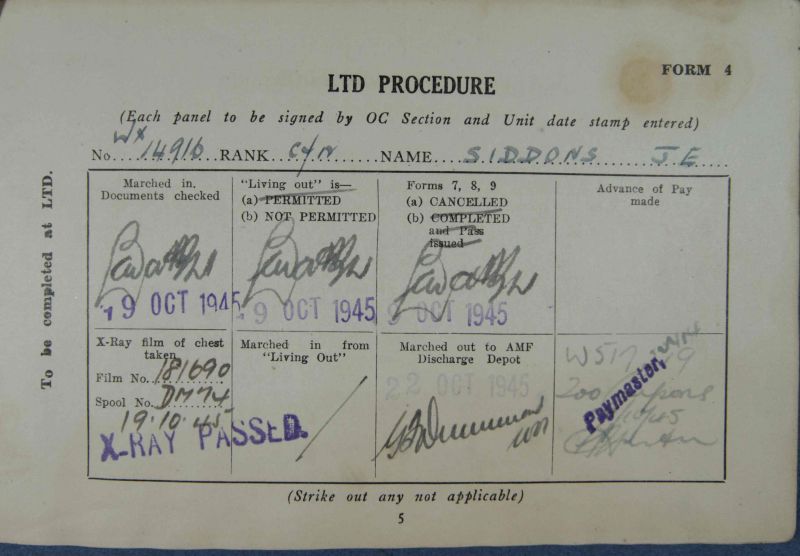 FORM 4
LTD PROCEDURE
(Each panel to be signed by OC Section and Unit date stamp entered)
No. WX 14916 RANK NAME SIDDONS J E
To be completed at LTD.
Marched in.
Documents checked
19 OCT 1945
"Living out" is—
(a) PERMITTED
(b) NOT PERMITTED
19 OCT 1945
Forms 7, 8, 9
(a) CANCELLED
(b) COMPLETED
and Pass
issued
9 OCT 1945
Advance of Pay
made
X-Ray film of chest
taken
Film No. 181690
Spool No. DM74
19.10.45
X-RAY PASSED.
Marched in from
"Living Out"
Marched out to AMF
Discharge Depot
22 OCT 1945
Paymaster,
(Strike out any not applicable)
5